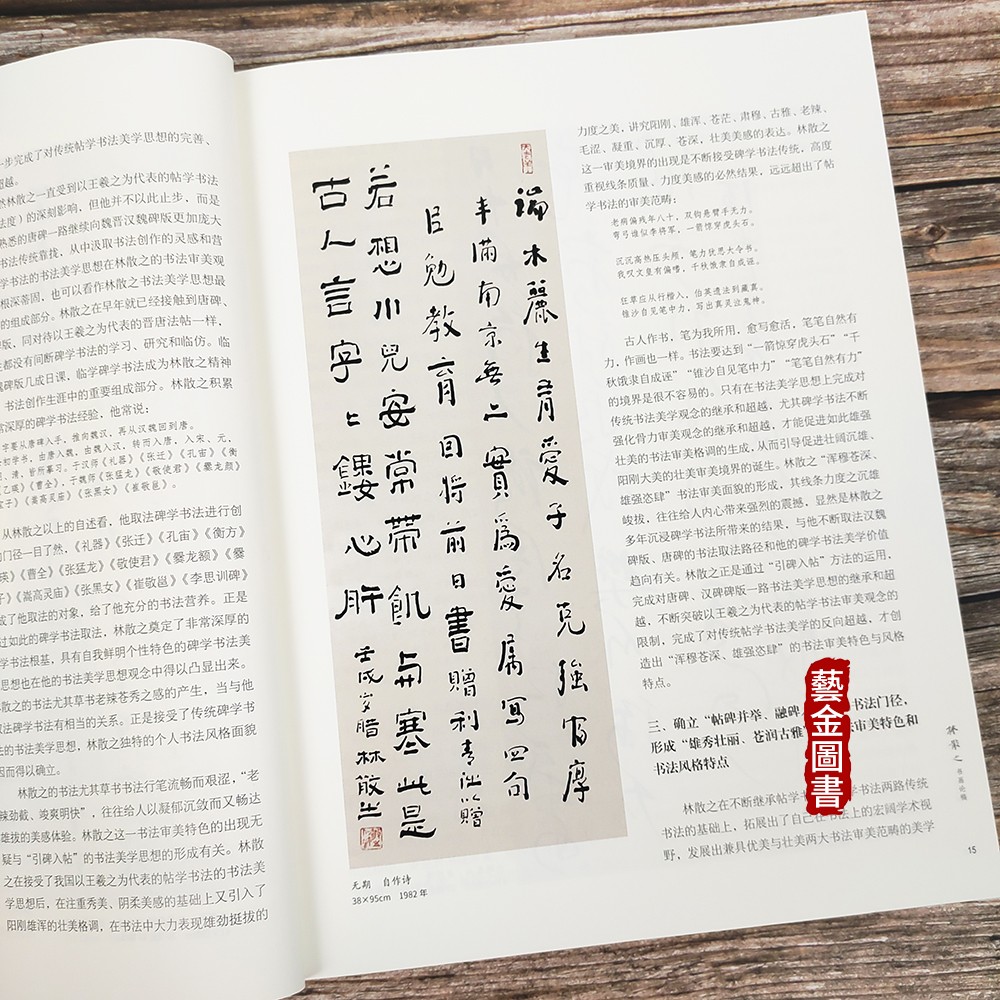 一步完成了对传统帖学书法美学思想的完善、
超越。
然林散之一直受到以王羲之为代表的帖学书法
法度）的深刻影响，但他并不以此止步，而是
熟悉的唐碑一路继续向魏晋汉魏碑版更加庞大
书法传统靠拢，从中汲取书法创作的灵感和营
学书法的书法美学思想在林散之书法审美观
根深蒂固，也可以看作林散之书法美学思想最
的组成部分。林散之在早年就已经接触到唐碑、
版，同对待以王羲之为代表的晋唐法帖一样，
生都没有间断碑学书法的学习、研究和临仿。临
魏碑版几成日课，临学碑学书法成为林散之精神
书法创作生涯中的重要组成部分。林散之积累
常深厚的碑学书法经验，他常说：
字要从唐碑入手，推向魏汉，再从汉魏回到唐。
初学书，由唐入魏，由魏入汉，转而入唐，入宋、元，
明、清，皆所摹习。于汉师《礼器》《张迁》《孔宙》《衡
《乙瑛》《曹全》，于魏师《张猛龙》《敬使君》《爨龙颜》
宝子》《嵩高灵庙》《张黑女》《崔敬邕》。
从林散之以上的自述看，他取法碑学书法进行创
的门径一目了然，《礼器》《张迁》《孔宙》《衡方》
瑛》《曹全》《张猛龙》《敬使君》《爨龙颜》《爨
子》《嵩高灵庙》《张黑女》《崔敬邕》《李思训碑》
成了他取法的对象，给了他充分的书法营养。正是
过如此的碑学书法取法，林散之奠定了非常深厚的
学书法根基，具有自我鲜明个性特色的碑学书法美
思想也在他的书法美学思想观念中得以凸显出来。
散之的书法尤其草书老辣苍秀之感的产生，当与他
法碑学书法有相当的关系。正是接受了传统碑学书
法的书法美学思想，林散之独特的个人书法风格面貌
因而得以确立。
林散之的书法尤其草书书法行笔流畅而艰涩，“老
辣劲截、竣爽明快”，往往给人以凝郁沉敛而又畅达
雄拔的美感体验。林散之这一书法审美特色的出现无
疑与“引碑入帖”的书法美学思想的形成有关。林散
之在接受了我国以王羲之为代表的帖学书法的书法美
学思想后，在注重秀美、阴柔美感的基础上又引入了
阳刚雄浑的壮美格调，在书法中大力表现雄劲挺拔的
端木丽生育爱子名克强肥厚
丰满南京无二宝为爱属写四句
目勉教育回将前日书赠利青涂以赠
若想小儿安常带饥与寒此是
古人言字々鏤心肝
壬戌岁腊林散之
无期 自作诗
38×95cm 1982年
力度之美，讲究阳刚、雄浑、苍茫、肃穆、古雅、老辣、
毛涩、凝重、沉厚、苍深、壮美美感的表达。林散之
这一审美境界的出现是不断接受碑学书法传统，高度
重视线条质量、力度美感的必然结果，远远超出了帖
学书法的审美范畴：
老病偏残年八十，双钩悬臂手无力。
弯弓谁似李将军，一箭惊穿虎头石。
沉沉高热压头颅，笔力犹思大令书。
我叹文皇有偏嗜，千秋饿隶自成诬。
狂草应从行楷入，伯英遗法到藏真。
锥沙自见笔中力，写出真灵泣鬼神。
古人作书，笔为我所用，愈写愈活，笔笔自然有
力，作画也一样。书法要达到“一箭惊穿虎头石”“千
秋饿隶自成诬”“锥沙自见笔中力”“笔笔自然有力”
的境界是很不容易的。只有在书法美学思想上完成对
传统书法美学观念的继承和超越，尤其碑学书法不断
强化骨力审美观念的继承和超越，才能促进如此雄强
壮美的书法审美格调的生成，从而引导促进壮阔沉雄、
阳刚大美的壮美审美境界的诞生。林散之“浑穆苍深、
雄强恣肆”书法审美面貌的形成，其线条力度之沉雄
峻拔，往往给人内心带来强烈的震撼，显然是林散之
多年沉浸碑学书法所带来的结果，与他不断取法汉魏
碑版、唐碑的书法取法路径和他的碑学书法美学价值
趋向有关。林散之正是通过“引碑入帖”方法的运用，
完成对唐碑、汉碑碑版一路书法美学思想的继承和超
越，不断突破以王羲之为代表的帖学书法审美观念的
限制，完成了对传统帖学美学的反向超越，才创
造出“浑穆苍深、雄强恣肆”的书法审美特色与风格
特点。
三、确立“帖碑并举、融碑 书法门径，
形成“雄秀壮丽、苍润古雅” 法审美特色和
书法风格特点
林散之在不断继承帖学书 学书法两路传统
书法的基础上，拓展出了自己在书法上的宏阔学术视
野，发展出兼具优美与壮美两大书法审美范畴的美学
藝金圖書
林散之 书画论稿
15